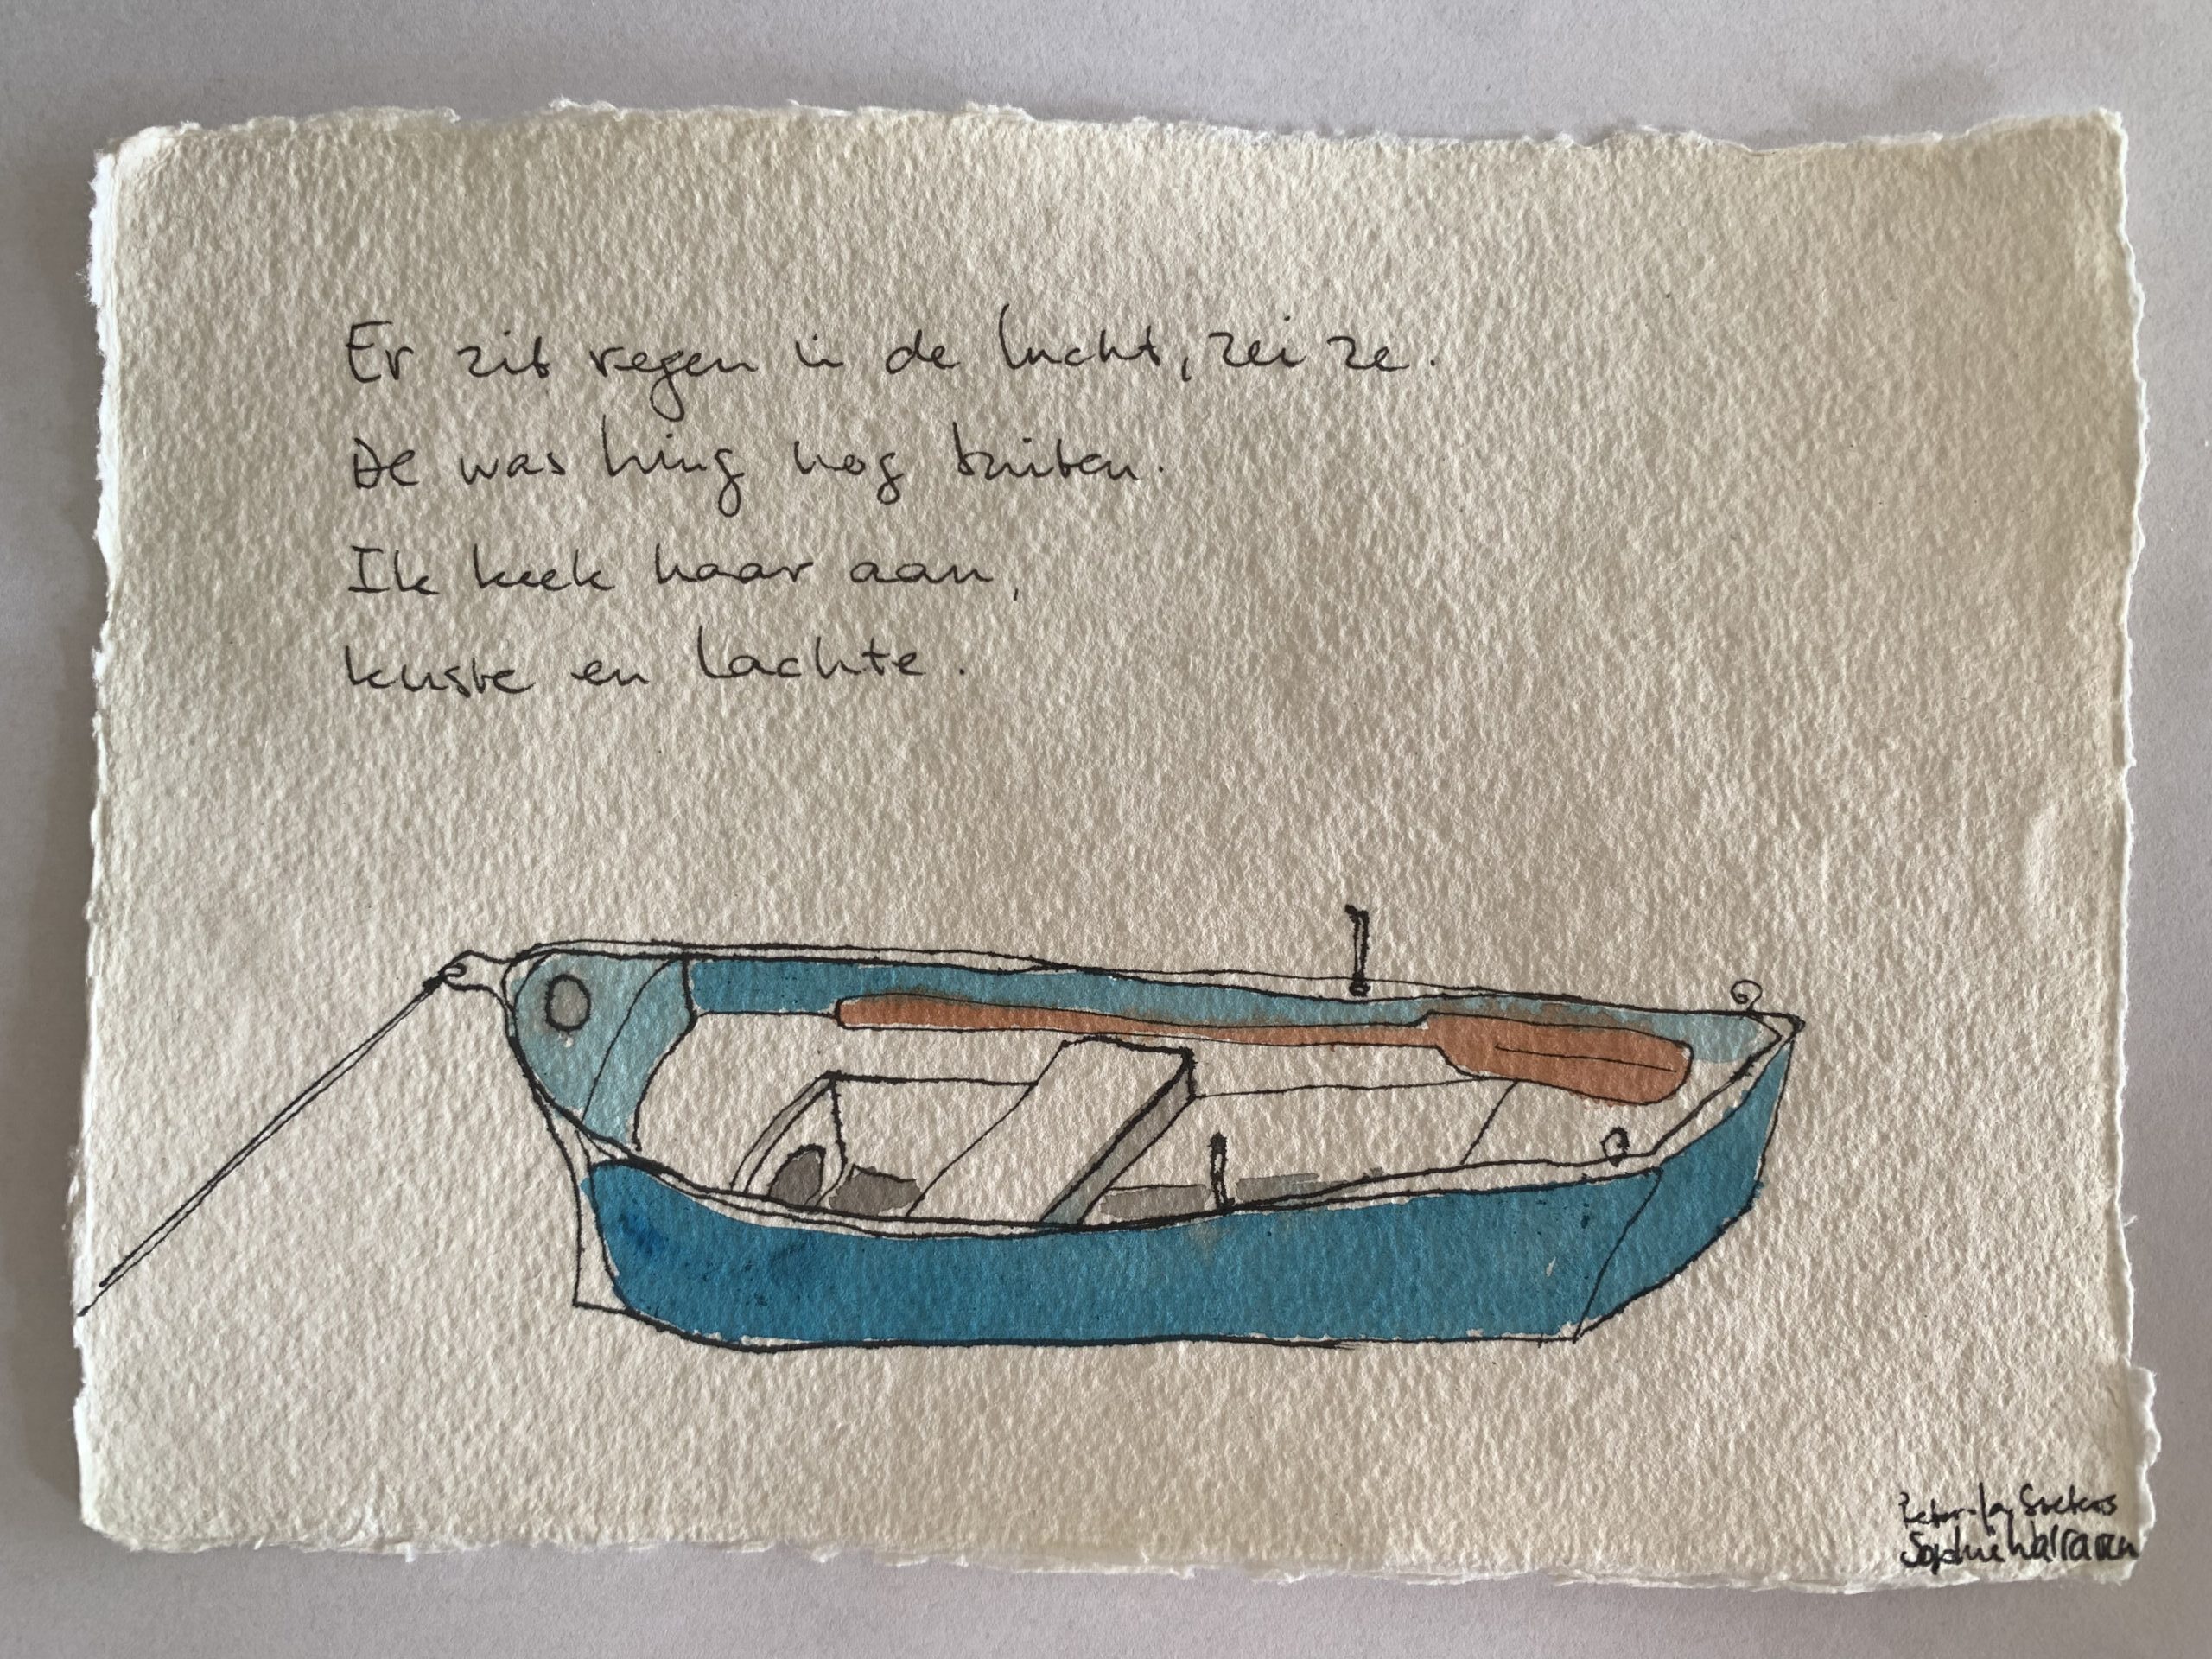 Er zit regen in de lucht, zei ze.
De was hing nog buiten.
Ik keek haar aan,
kuste en lachte.
Peter-Ja Soeters
Sophie Walraven